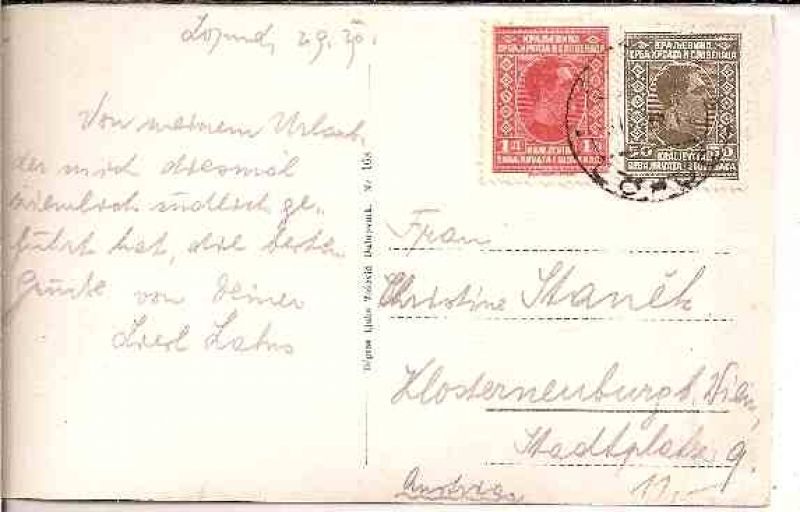 Lopud, 29.
Von meinem Urlaub,
der mich diesmal
ziemlich südlich ge-
führt hat, die besten
Grüße von Deiner
Liesl
КРАЉЕВИНА
СРБА, ХРВАТА И СЛОВЕНАЦА
1 Д 1
KRALJEVINA
SRBA, HRVATA I SLOVENACA
КРАЉЕВИНА
СРБА, ХРВАТА И СЛОВЕНАЦА
50 50
KRALJEVINA
SRBA, HRVATA I SLOVENACA
Dubrovnik. Nr 163
Frau
Christine Staněk
Klosterneuburg b. Wien,
Stadtplatz 9.
Austria
11,-